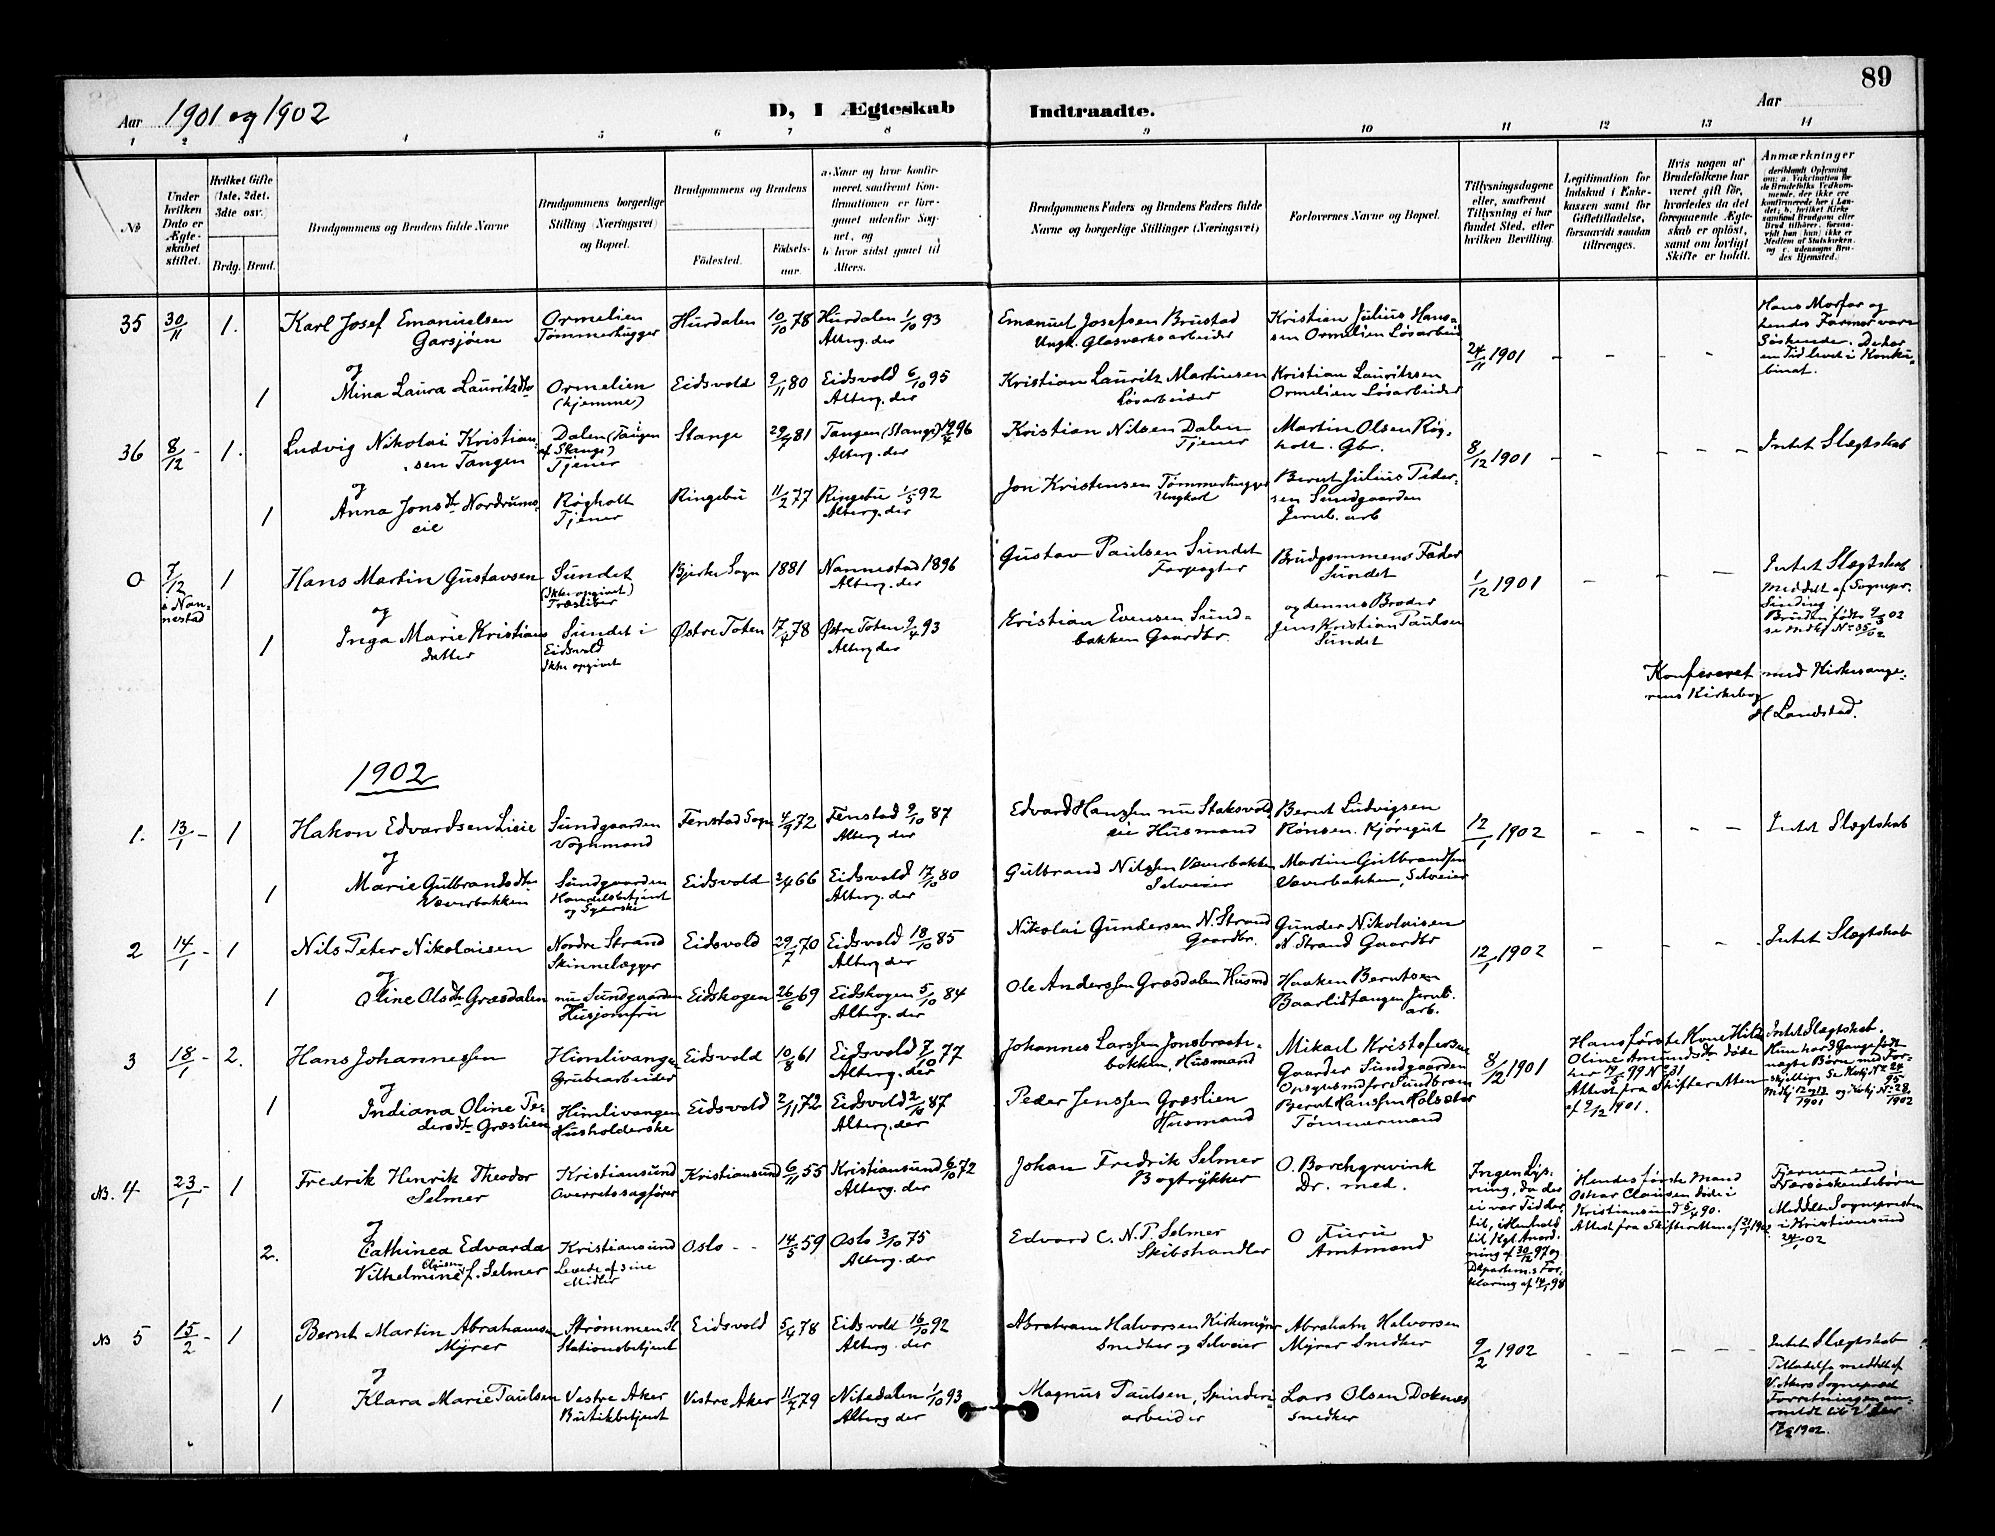 89
Aar 1901 og 1902
D, I Ægteskab Indtraadte.
Aar
1 2 3 4 5 6 7 8 9 10 11 12 13 14
No
Under hvilken Dato er Ægteskabet stiftet.
Hvilket Gifte (1ste, 2det, 3die osv.)
Brdg. Brud.
Brudgommens og Brudens fulde Navne
Brudgommens borgerlige Stilling (Næringsvei) og Bopæl.
Brudgommens og Brudens
Fødested.
Fødselsaar.
a. Naar og hvor konfirmeret, saafremt Konfirmationen er foregaaet udenfor Sognet, og
b. hvor sidst gaaet til Alters.
Brudgommens Faders og Brudens Faders fulde Navne og borgerlige Stillinger (Næringsvei)
Forlovernes Navne og Bopæl.
Tillysningsdagene eller, saafremt Tillysning ei har fundet Sted, efter hvilken Bevilling.
Legitimation for Indskud i Enkekassen samt for Giftetilladelse, forsaavidt saadan tiltrænges.
Hvis nogen af Brudefolkene har været gift før, hvorledes da det foregaaende Ægteskab er opløst, samt om lovligt Skifte er holdt.
Anmærkninger
35 30/11 1. Karl Josef Emanuelsen
Garsjøen
Ormelien
Tømmerhugger
Hurdalen 10/10 78
Hurdalen 1/10 93
Alterg. der
Emanuel Josefsen Brustad
Ungk. Glasværksarbeider
Kristian Julius Hans-
sen Ormelien Løsarbeid
24/11 1901 - - -
Hans Morfar og
hendes Farmor vare
Søskende. De har
en Tid levet i Konku-
binat.
og
1 Mina Laura Lauritzdtr
Ormelien
(hjemme)
Eidsvold 9/11 80
Eidsvold 6/10 95
Alterg. der
Kristian Lauritz Martinsen
Løsarbeider
Kristian Lauritzsen
Ormelien Løsarbeider
36 8/12 - 1. Ludvig Nikolai Kristian-
sen Tangen
Dalen (Tangen
af Stange)
Tjener
Stange 29/7 81
Tangen (Stange) 96
Alterg. der
Kristian Nilsen Dalen
Tjener
Martin Olsen Røg-
holt. Gbr.
8/12 1901 - - - - -
Intet Slægtskab
og
1 Anna Jonsdtr Nordrums-
eie
Røgholt
Tjener
Ringebu 11/2 77
Ringebu 1/5 92
Alterg. der
Jon Kristensen Tømmerhugger
Ungkarl
Bernt Julius Peder-
sen Sundgaarden
Jernb. arb
0 7/12
i Nan-
nestad
1 Hans Martin Gustavsen
Sundet
(Ikke opgivet)
Træsliber
Bjerke Sogn 1881
Nannestad 1896
Alterg. der
Gustav Paulsen Sundet
Forpagter
Brudgommens Fader
Sundet
1/12 1901 - - -
Intet Slægtskab
Meddelt af Sognepr.
Sinding
Bruden fødte 9/3 02
se Mdkf No 35/02
og
1 Inga Marie Kristians
datter
Sundet i
Eidsvold
Ikke opgivet
Østre Toten 17/4 78
Østre Toten 9/4 93
Alterg der
Kristian Evensen Sund-
bakken Gaardbr.
og dennes Broder
Jens Kristian Paulsen
Sundet
Konfereret med Kirkesange-
rens Kirkebog
Landstad.
1902
1. 13/1 - 1 Hakon Edvardsen Lieie
Sundgaarden
Vognmand
Fenstad Sogn 4/9 72
Fenstad 9/10 87
Alterg der
Edvard Hanssen nu Staksvold
eie Husmand
Bernt Ludvigsen
Rønsen. Kjøregut
12/1 1902 - - - -
Intet Slægtskab
og
1 Marie Gulbrandsdtr
Væverbakken
Sundgaarden
Handelsbetjent
og Syerske
Eidsvold 3/4 66
Eidsvold 17/10 80
Alterg. der
Gulbrand Nilssen Væverbakken
Selveier
Martin Gulbrandsen
Væverbakken, Selveier
2 14/1 - 1 Nils Peter Nikolaisen
Nordre Strand
Skinnelægger
Eidsvold 29/7 70
Eidsvold 18/10 85
Alterg der
Nikolai Gundersen N. Strand
Gaardbr.
Gunder Nikolaisen
N Strand Gaardbr
12/1 1902 - - -
Intet Slægtskab
og
1 Oline Olsdtr Græsdalen
nu Sundgaarden
Husjomfru
Eidskogen 26/6 69
Eidskogen 5/10 84
Alterg. der
Ole Anderssen Græsdalen Husmd
Haaken Berntsen
Baarlidtangen Jernb.
arb.
3 18/1 - 2. Hans Johannessen
Himlivangen
Grubearbeider
Eidsvold 10/8 61
Eidsvold 7/10 77
Alterg. der
Johannes Larssen Jonsbraat-
bakken, Husmand
Mikael Kristofersen
Gaarder Sundgaarden
Opsynsmd for Sundbroen
8/12 1901
Hans første Kone Hilda
Oline Amundsdtr døde
her 19/5 99 No 31
Attest fra Skifteretten
af 9/12 1901.
Intet Slægtskab.
Se Kirkj No 24/95
Mdkj 12 og 13/1901 og Kirkj No 28/1902
og
1 Indiana Oline Pe-
dersdtr Græslien
Himlivangen
Husholderske
Eidsvold 2/11 72
Eidsvold 2/10 87
Alterg. der
Peder Jenssen Græslien
Husmand
Bernt Hanssen Holsæter
Tømmermand
NB. 4 23/1 - 1 Fredrik Henrik Theodor
Selmer
Kristiansund
Overretssagfører
Kristiansund 6/11 55
Kristiansund 6/10 72
Alterg. der
Johan Fredrik Selmer
Bogtrykker
O. Borchgrevink
Dr. med.
Ingen Lys-
ning, da der
ei var Tid der-
til, i Henhold
til Kgl. Anord-
ning af 30/12 97 og
Departem.s For-
klaring af 14/1 98
Hendes første Mand
Oskar Clausen døde i
Kristiansund 5/4 90.
Attest fra Skifteretten af 21/1 1902
Fjernere end
Næssøskendebørn
Meddelt Sognepresten
i Kristiansund
24/1 02
og
2. Cathinca Edvarda
Vilhelmine Clausen f. Selmer
Kristiansund
Levede af sine
Midler
Oslo - - 14/5 59
Oslo 3/10 75
Alterg. der
Edvard C. N. P. Selmer
Skibshandler
O Furu
Amtmand
NB 5 15/2 - 1 Bernt Martin Abrahamsen
Myrer
Strømmen St
Stationsbetjent
Eidsvold 5/4 78
Eidsvold 16/10 92
Alterg. der
Abraham Halvorsen Kirkemyrer
Snedker og Selveier
Abraham Halvorsen
Myrer Snedker
9/2 1902 - - - -
Intet Slægtskab
Tilladelse meddelt af
V. Akers Sogneprest
Forretningen an-
meldt til V. Aker
17/2 1902.
og
1 Klara Marie Paulsen
Vestre Aker
Butikbetjent
Vestre Aker 11/7 79
Nitedalen 1/10 93
Alterg der
Magnus Paulsen, Spinderi-
arbeider
Lars Olsen Doknæs
Snedker